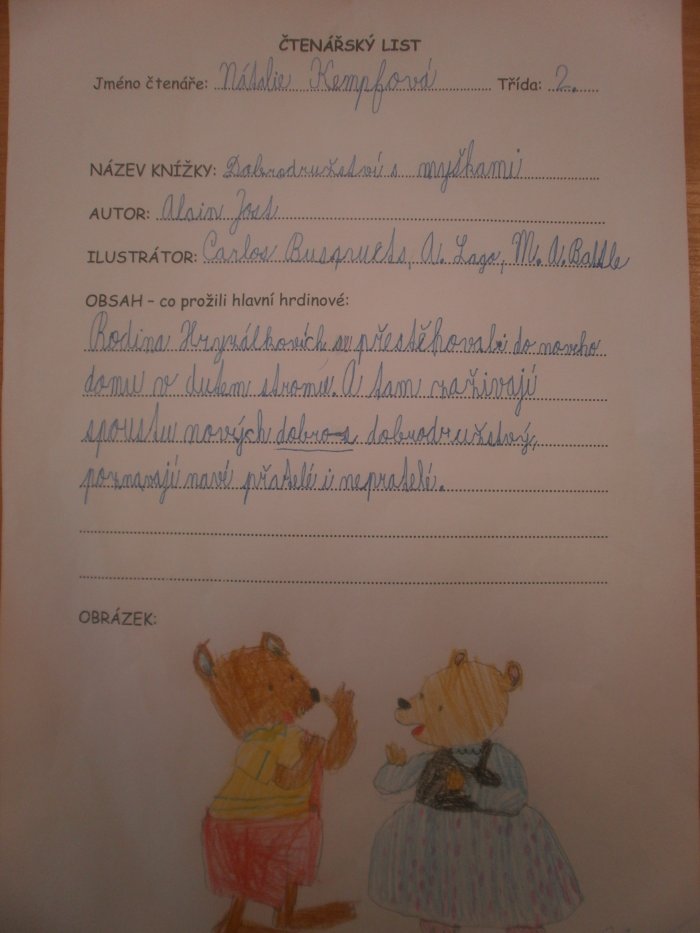 ČTENÁŘSKÝ LIST
Jméno čtenáře: Nátalie Kempfová Třída: 2.
NÁZEV KNÍŽKY: Dobrodružství s myškami
AUTOR: Alain Jost
ILUSTRÁTOR: Carlos Busquets, A. Lago, M. A. Batlle
OBSAH – co prožili hlavní hrdinové:
Rodina Hryzálkovích se přestěhovali do noveho
domu v dutem stromě. A tam zaživají
spoustu nových dobro-s dobrodružstvý,
poznavají navé přatelé i nepratelé.
OBRÁZEK: